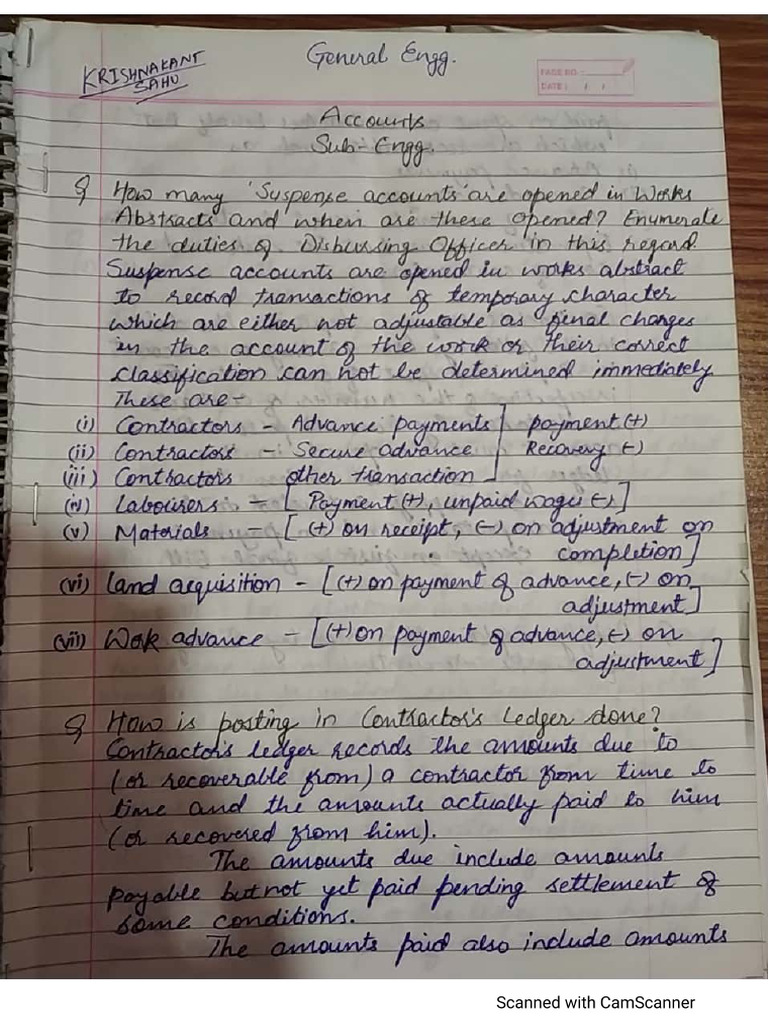 General Engg.
KRISHNAKANT
SAHU
PAGE NO.:
DATE: / /
Accounts
Sub-Engg.
Q How many 'Suspense accounts' are opened in Works
Abstracts and when are these opened? Enumerate
the duties of Disbursing Officer in this regard.
Suspense accounts are opened in works abstract
to record transactions of temporary character
which are either not adjustable as final charges
in the account of the work or their correct
classification can not be determined immediately
These are -
(i) Contractors - Advance payments ] payment (+)
(ii) Contractors - Secure advance Recovery (-)
(iii) Contractors other transaction
(iv) Labourers - [Payment (+), unpaid wages (-)]
(v) Materials - [(+) on receipt, (-) on adjustment on
completion]
(vi) Land acquisition - [(+) on payment of advance, (-) on
adjustment]
(vii) Wok advance - [(+) on payment of advance, (-) on
adjustment]
Q How is posting in Contractor's Ledger done?
Contractor's ledger records the amounts due to
(or recoverable from) a contractor from time to
time and the amounts actually paid to him
(or recovered from him).
The amounts due include amounts
payable but not yet paid pending settlement of
some conditions.
The amounts paid also include amounts
Scanned with CamScanner